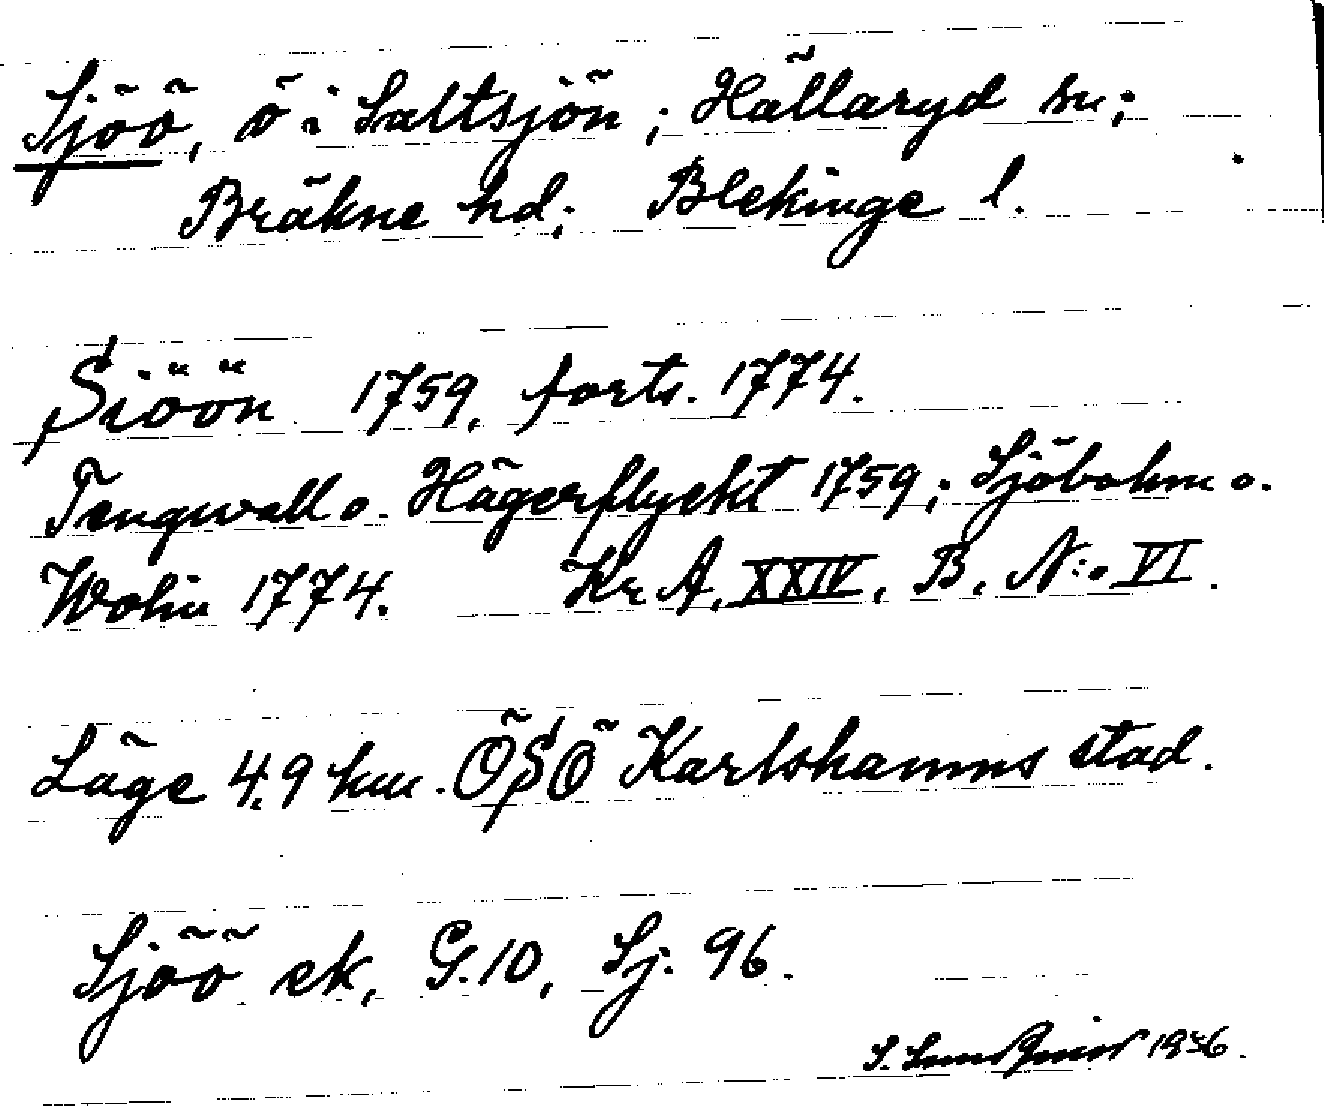 Sjöö, ö i Saltsjön; Hällaryd sn;
Bräkne hd; Blekinge l.
Siöön 1759, forts. 1774.
Tengwall o. Hägerflyckt 1759; Sjöbohm o.
Wohin 1774. Kr. A, XXIV, B, N:o VI.
Läge 4,9 km. ÖSÖ Karlshamns stad.
Sjöö ek, G.10, Sj. 96.
S. 1936.